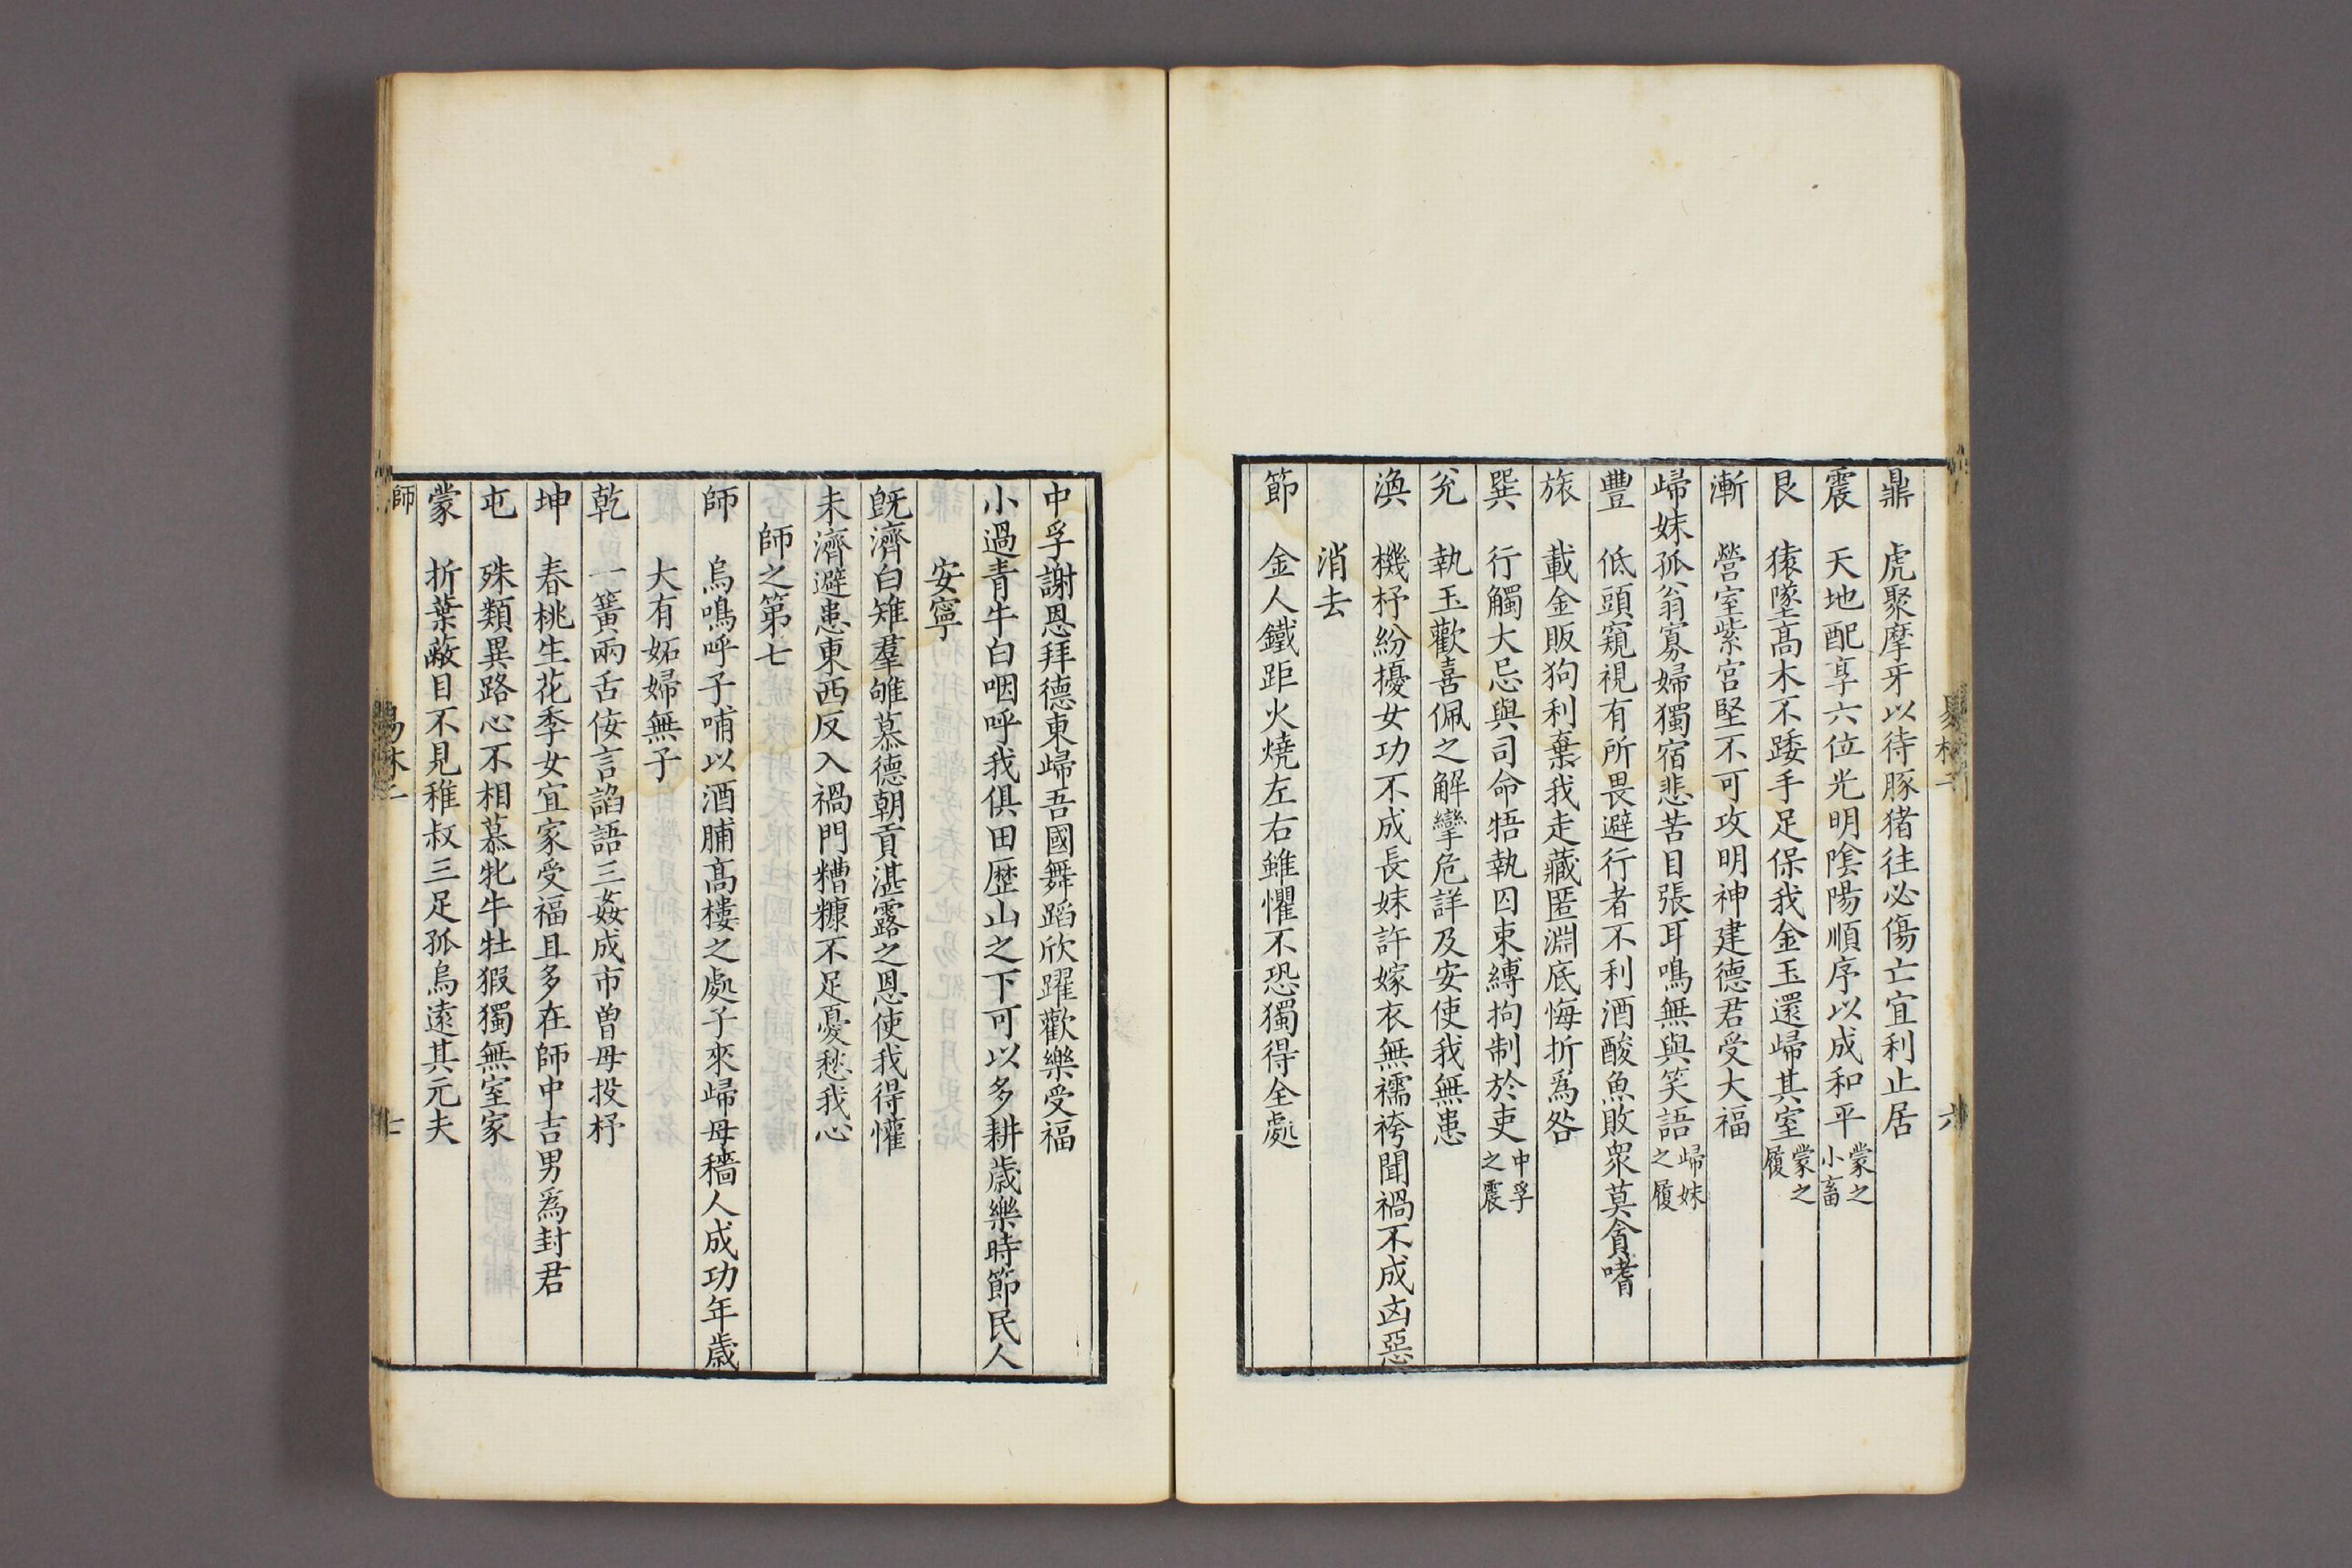 鼎　虎聚摩牙以待豚猪往必傷亡宜利止居
震　天地配享六位光明隂陽順序以成和平蒙之小畜
艮　猿墜髙木不踒手足保我金玉還歸其室蒙之履
漸　營室紫宫堅不可攻明神建德君受大福
歸妹孤翁寡婦獨宿悲苦目張耳鳴無與笑語歸妹之履
豐　低頭窺視有所畏避行者不利酒酸魚敗衆莫貪嗜
旅　載金販狗利棄我走藏匿淵底悔折爲咎
巽　行觸大忌與司命牾執囚束縛拘制於吏中孚之震
兊　執玉歡喜佩之解攣危詳及安使我無患
渙　機杼紛擾女功不成長妹許嫁衣無襦袴聞禍不成凶惡
消去
節　金人鐵距火燒左右雖懼不恐獨得全處
中孚謝恩拜德東歸吾國舞蹈欣躍歡樂受福
小過青牛白咽呼我俱田歷山之下可以多耕歲樂時節民人
安寧
旣濟白雉羣雊慕德朝貢湛露之恩使我得懽
未濟避患東西反入禍門糟糠不足憂愁我心
師之第七
師　烏鳴呼子哺以酒脯髙樓之處子來歸母穡人成功年歲
大有妬婦無子
乾　一簧兩舌佞言諂語三姦成市曾母投杼
坤　春桃生花季女宜家受福且多在師中吉男爲封君
屯　殊類異路心不相慕牝牛牡猳獨無室家
蒙　折葉蔽目不見稚叔三足孤烏遠其元夫
師
七